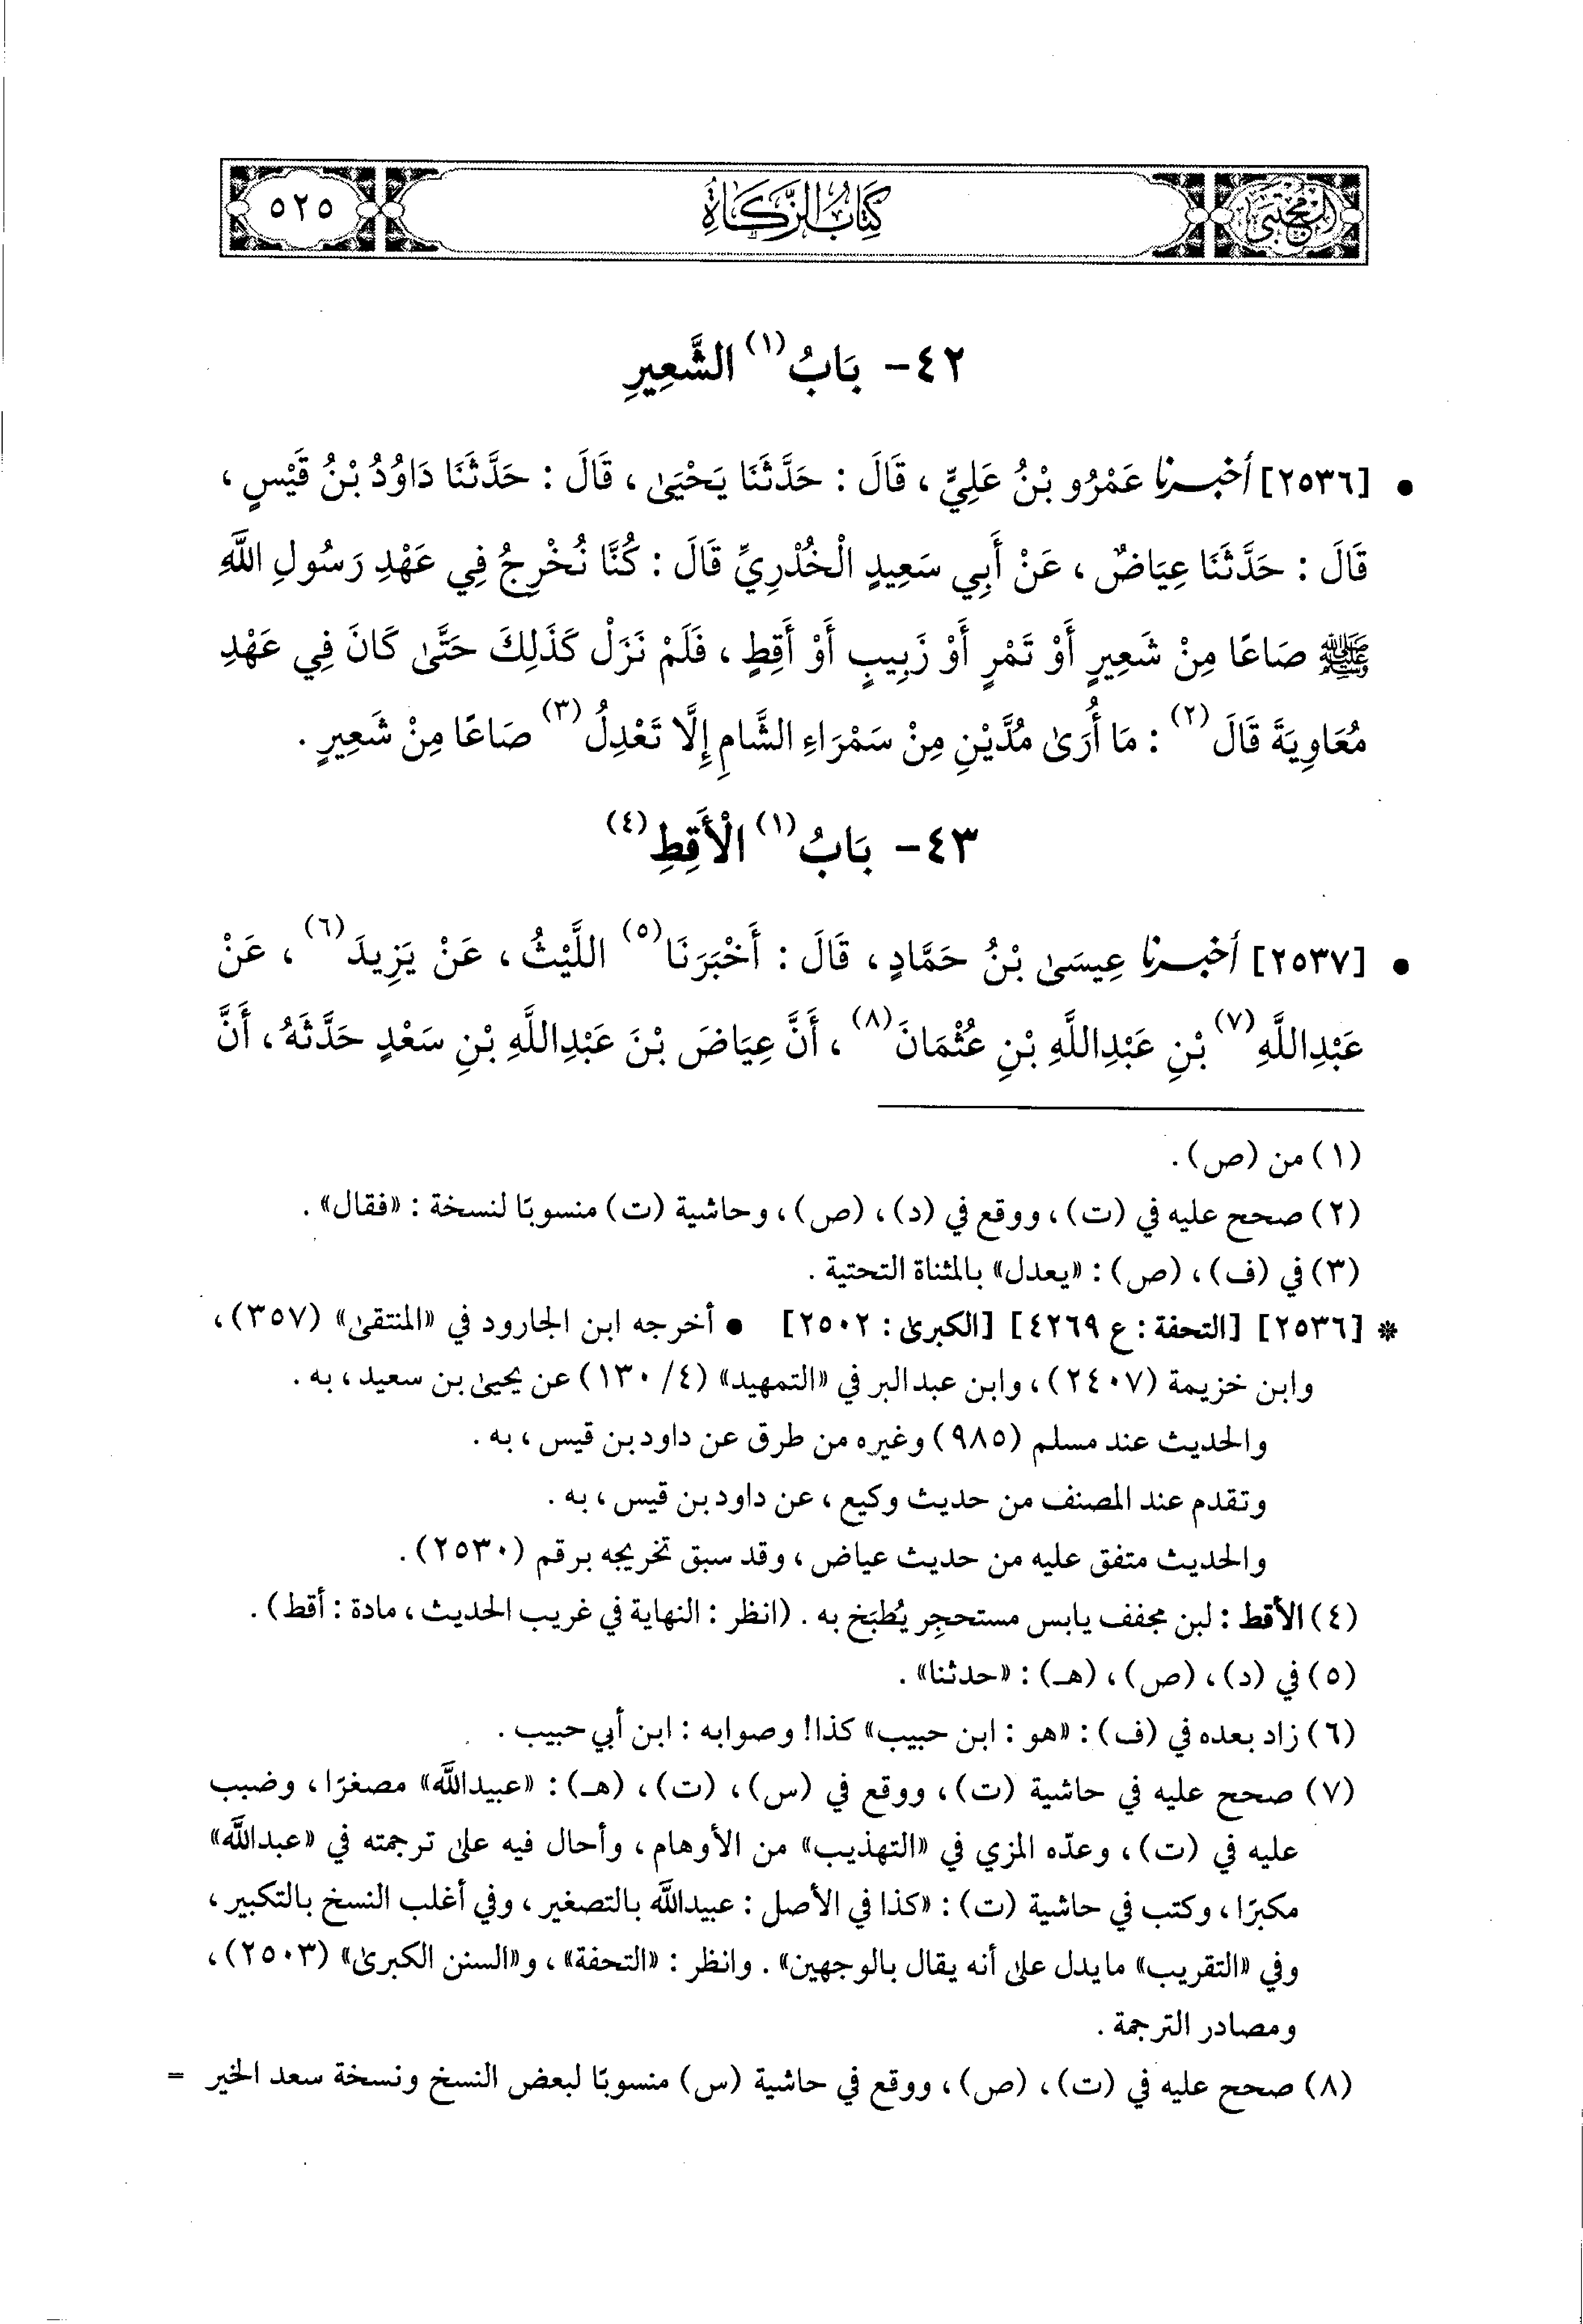 المجتبى
كِتَابُ الزَّكَاةِ
٥٢٥
٤٢- بَابُ(١) الشَّعِيرِ
• [٢٥٣٦] أخبرنا عَمْرُو بْنُ عَلِيٍّ، قَالَ: حَدَّثَنَا يَحْيَىٰ، قَالَ: حَدَّثَنَا دَاوُدُ بْنُ قَيْسٍ،
قَالَ: حَدَّثَنَا عِيَاضٌ، عَنْ أَبِي سَعِيدٍ الْخُدْرِيِّ قَالَ: كُنَّا نُخْرِجُ فِي عَهْدِ رَسُولِ اللَّهِ
ﷺ صَاعًا مِنْ شَعِيرٍ أَوْ تَمْرٍ أَوْ زَبِيبٍ أَوْ أَقِطٍ، فَلَمْ نَزَلْ كَذَلِكَ حَتَّىٰ كَانَ فِي عَهْدِ
مُعَاوِيَةَ قَالَ(٢): مَا أُرَىٰ مُدَّيْنِ مِنْ سَمْرَاءِ الشَّامِ إِلَّا تَعْدِلُ(٣) صَاعًا مِنْ شَعِيرٍ.
٤٣- بَابُ(١) الْأَقِطِ(٤)
• [٢٥٣٧] أخبرنا عِيسَىٰ بْنُ حَمَّادٍ، قَالَ: أَخْبَرَنَا(٥) اللَّيْثُ، عَنْ يَزِيدَ(٦)، عَنْ
عَبْدِاللَّهِ(٧) بْنِ عَبْدِاللَّهِ بْنِ عُثْمَانَ(٨)، أَنَّ عِيَاضَ بْنَ عَبْدِاللَّهِ بْنِ سَعْدٍ حَدَّثَهُ، أَنَّ
(١) من (ص).
(٢) صحح عليه في (ت)، ووقع في (د)، (ص)، وحاشية (ت) منسوبًا لنسخة: «فقال».
(٣) في (ف)، (ص): «يعدل» بالمثناة التحتية.
* [٢٥٣٦] [التحفة: ع ٤٢٦٩] [الكبرىٰ: ٢٥٠٢] • أخرجه ابن الجارود في «المنتقىٰ» (٣٥٧)،
وابن خزيمة (٢٤٠٧)، وابن عبدالبر في «التمهيد» (٤/ ١٣٠) عن يحيىٰ بن سعيد، به.
والحديث عند مسلم (٩٨٥) وغيره من طرق عن داود بن قيس، به.
وتقدم عند المصنف من حديث وكيع، عن داود بن قيس، به.
والحديث متفق عليه من حديث عياض، وقد سبق تخريجه برقم (٢٥٣٠).
(٤) الأقط: لبن مجفف يابس مستحجِر يُطبَخ به. (انظر: النهاية في غريب الحديث، مادة: أقط).
(٥) في (د)، (ص)، (هـ): «حدثنا».
(٦) زاد بعده في (ف): «هو: ابن حبيب» كذا! وصوابه: ابن أبي حبيب.
(٧) صحح عليه في حاشية (ت)، ووقع في (س)، (ت)، (هـ): «عبيدالله» مصغرًا، وضبب
عليه في (ت)، وعدّه المزي في «التهذيب» من الأوهام، وأحال فيه علىٰ ترجمته في «عبدالله»
مكبرًا، وكتب في حاشية (ت): «كذا في الأصل: عبيدالله بالتصغير، وفي أغلب النسخ بالتكبير،
وفي «التقريب» ما يدل علىٰ أنه يقال بالوجهين». وانظر: «التحفة»، و«السنن الكبرىٰ» (٢٥٠٣)،
ومصادر الترجمة.
(٨) صحح عليه في (ت)، (ص)، ووقع في حاشية (س) منسوبًا لبعض النسخ ونسخة سعد الخير =